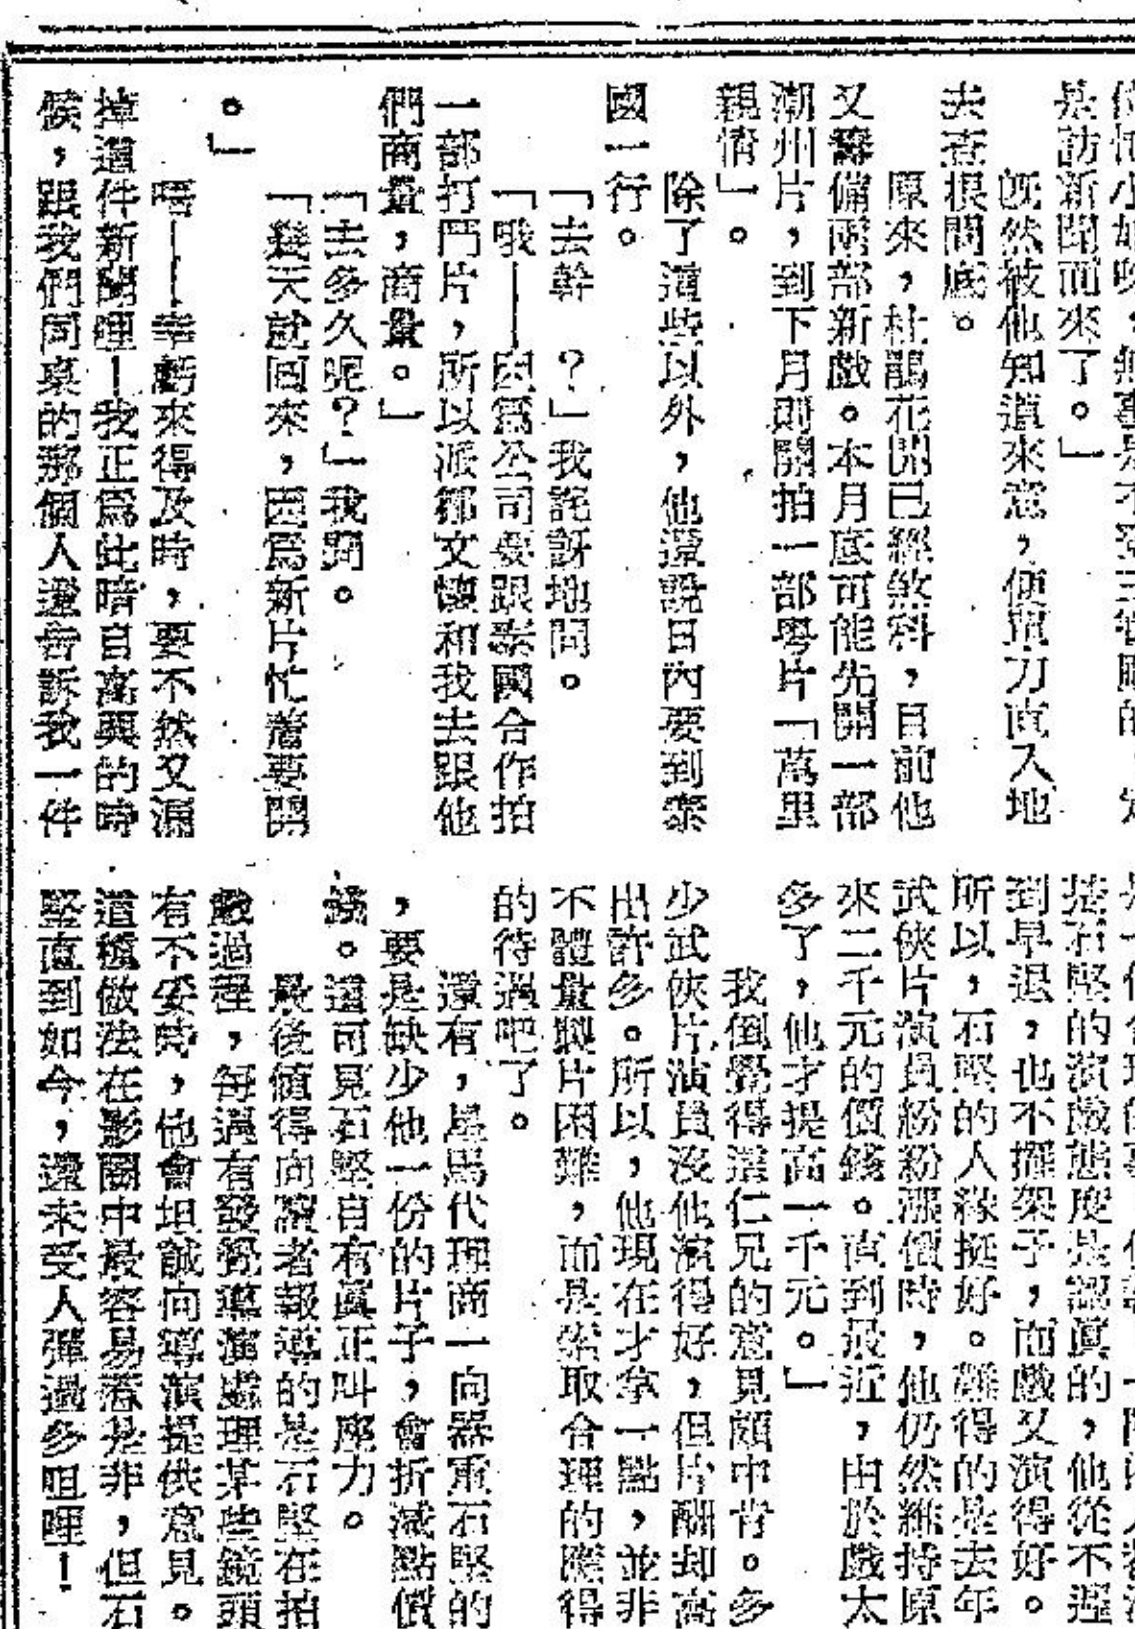 是訪新聞而來了。」
既然被他知道來意，便單刀直入地
去查根問底。
原來，杜鵑花開已經煞科，目前他
又籌備兩部新戲。本月底可能先開一部
潮州片，到下月則開拍一部粵片「萬里
親情」。
除了這些以外，他還說日內要到泰
國一行。
「去幹　？」我詫訝地問。
「哦——因為公司要跟泰國合作拍
一部打鬥片，所以派鄒文懷和我去跟他
們商量，商量。」
「去多久呢？」我問。
「幾天就回來，因為新片忙着要開
。」
唔——幸虧來得及時，要不然又漏
掉這件新聞哩！我正為此暗自高興的時
候，跟我們同桌的那個人還告訴我一件
石堅的演戲態度是認真的，他從不遲
到早退，也不擺架子，而戲又演得好。
所以，石堅的人緣挺好。難得的是去年
武俠片演員紛紛漲價時，他仍然維持原
來二千元的價錢。直到最近，由於戲太
多了，他才提高一千元。」
我倒覺得這仁兄的意見頗中肯。多
少武俠片演員沒他演得好，但片酬却高
出許多。所以，他現在才拿一點，並非
不體量製片困難，而是索取合理的應得
的待遇吧了。
還有，星馬代理商一向器重石堅的
，要是缺少他一份的片子，會折減點價
錢。這可見石堅自有真正叫座力。
最後值得向讀者報導的是石堅在拍
戲過程，每遇有發覺導演處理某些鏡頭
有不妥時，他會坦誠向導演提供意見。
這種做法在影圈中最容易惹是非，但石
堅直到如今，還未受人彈過多咀哩！